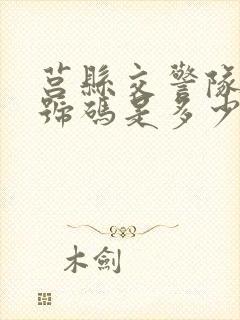 莒縣交警隊
號碼是多少
木劍